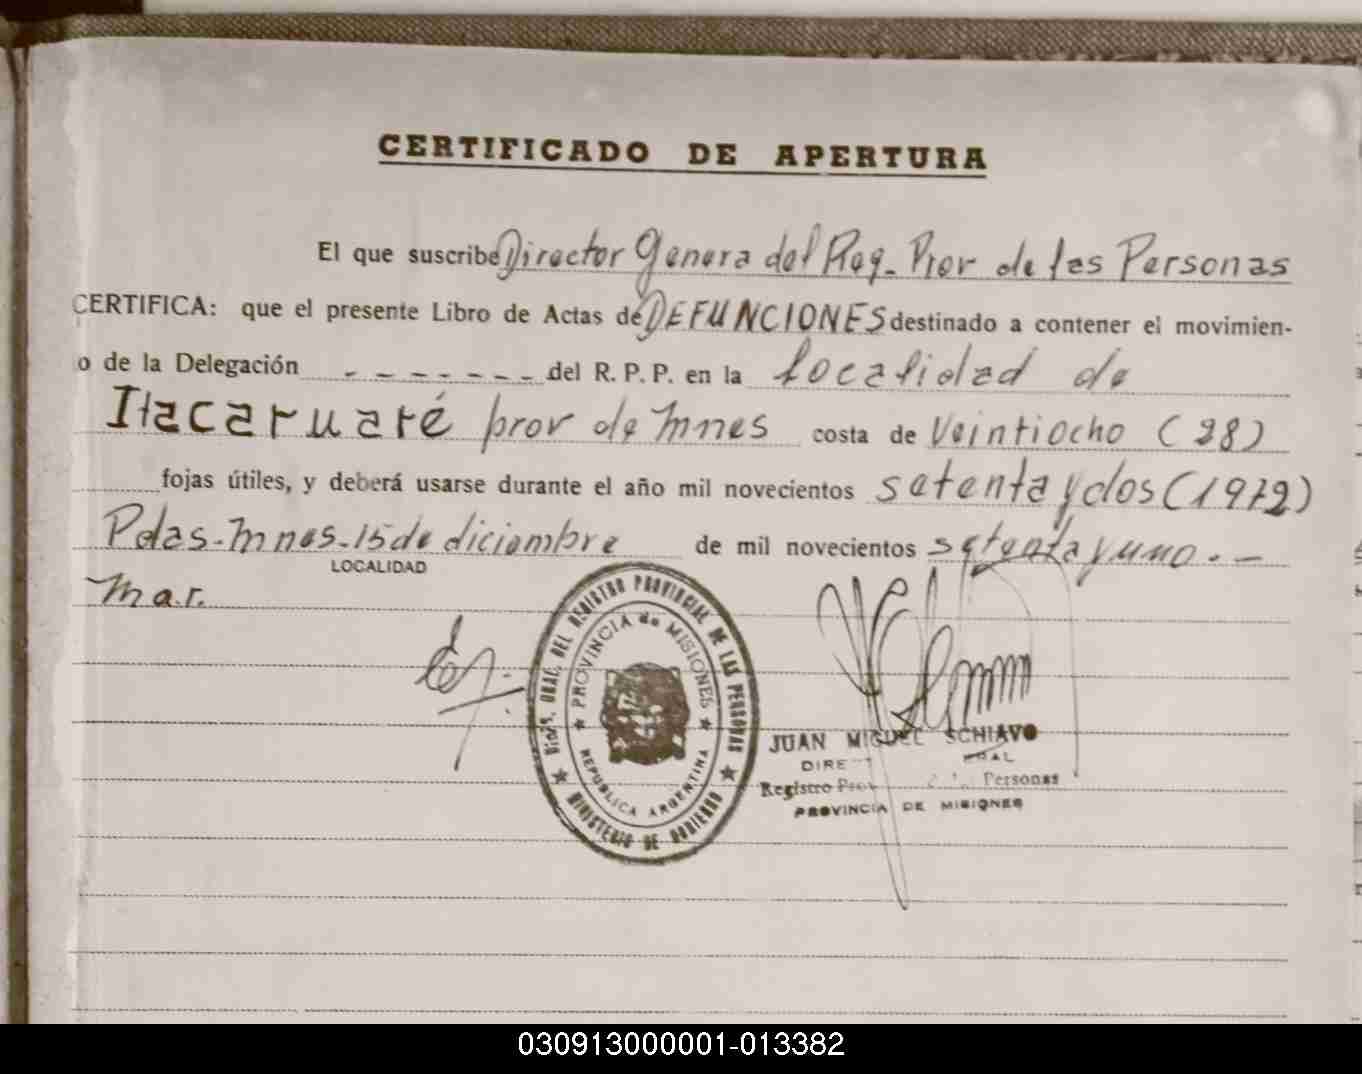 CERTIFICADO DE APERTURA
El que suscribe Director Genera del Reg. Prov de las Personas
CERTIFICA: que el presente Libro de Actas de DEFUNCIONES destinado a contener el movimien-
o de la Delegación - - - - - - - del R. P. P. en la localidad de
Itacaruaré prov de Mnes costa de Veintiocho (28)
fojas útiles, y deberá usarse durante el año mil novecientos setenta y dos (1972)
Pdas-Mnes-15 de diciembre de mil novecientos setenta y uno.-
LOCALIDAD
Mar.
DIR. GRAL. DEL REGISTRO PROVINCIAL DE LAS PERSONAS
PROVINCIA de MISIONES
REPUBLICA ARGENTINA
MINISTERIO DE GOBIERNO
JUAN MIGUEL SCHIAVO
DIRE RAL
Registro Prov Personas
PROVINCIA DE MISIONES
030913000001-013382